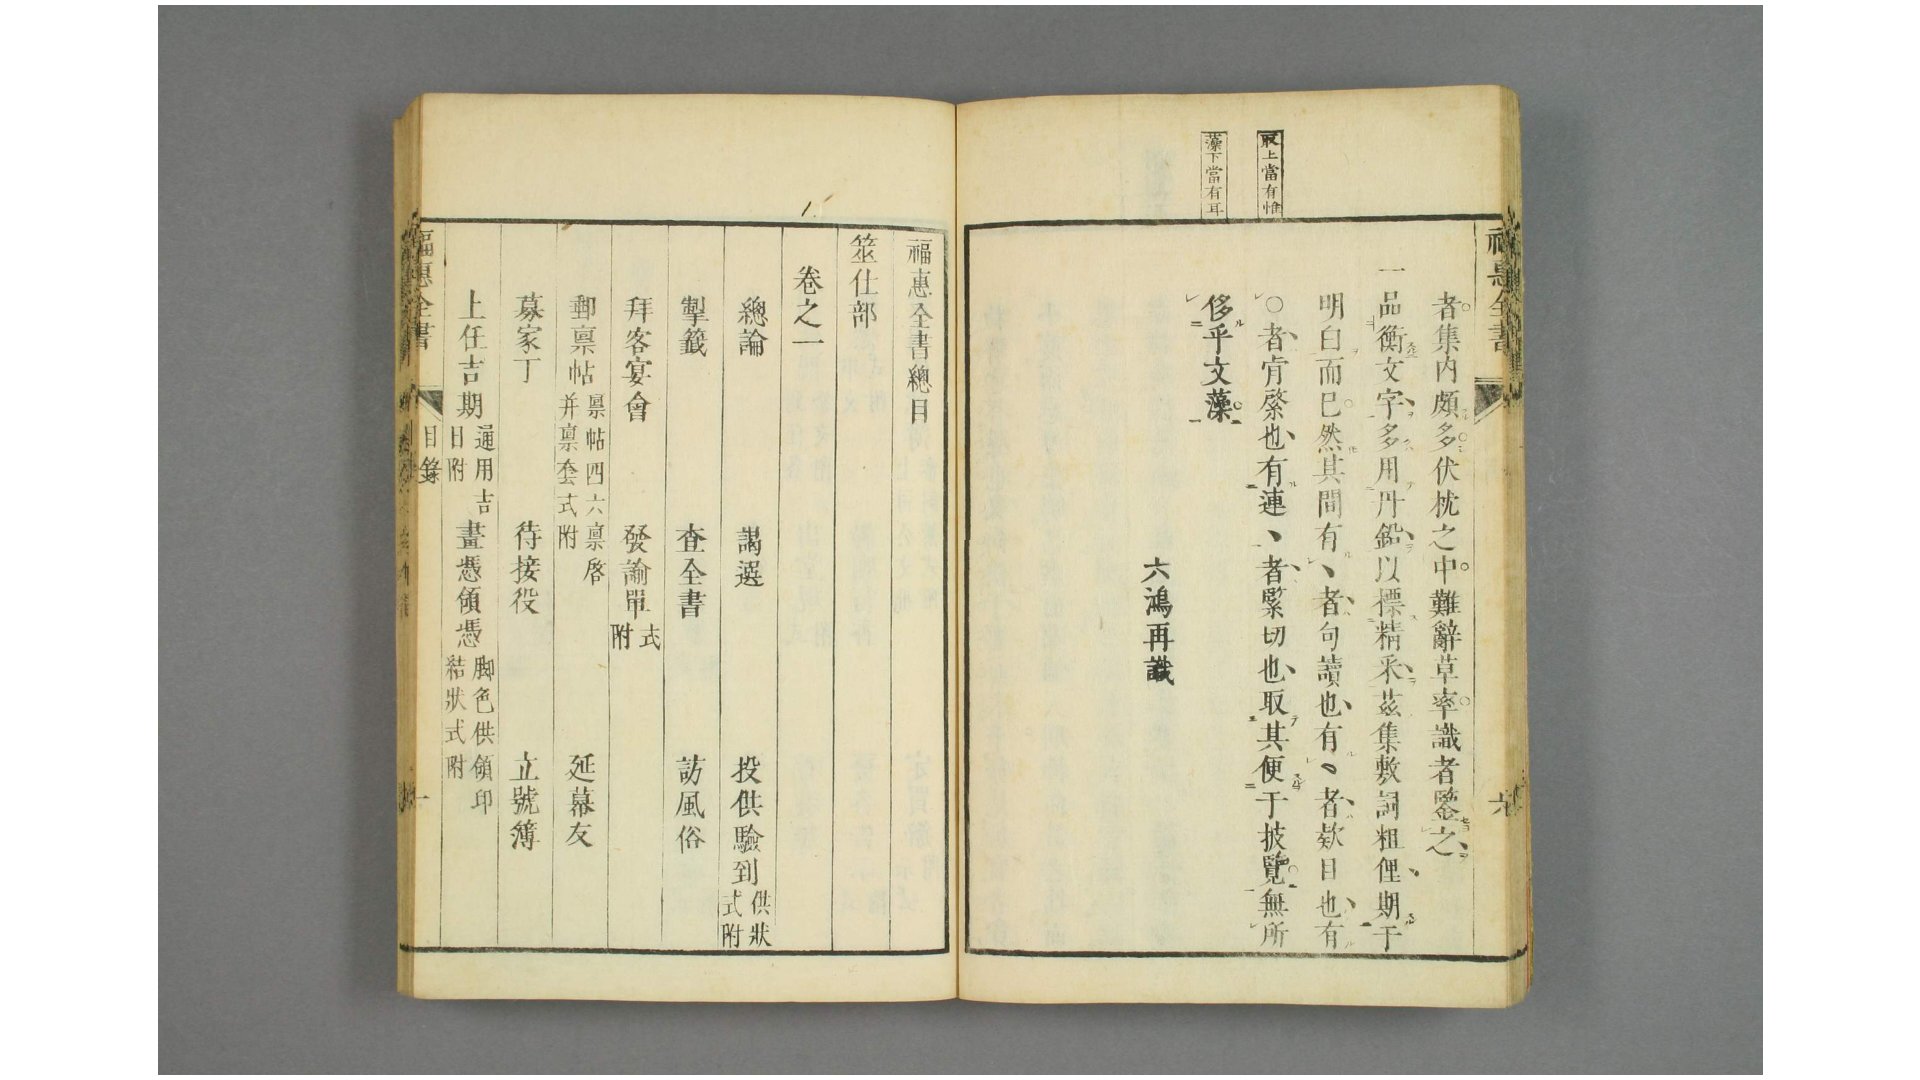 福惠全書
六
者集内頗多伏枕之中難辭草率識者鑒之
一品衡文字多用丹鉛以標精采茲集敷詞粗俚期于
明白而已然其間有、者句讀也有、者欵目也有
○者肯綮也有連、、者緊切也取其便于披覽無所
侈乎文藻
六鴻再識
最上當有惟
藻下當有耳
福惠全書總目
筮仕部
卷之一
總論 謁選 投供驗到 供狀式附
掣籤 查全書 訪風俗
拜客宴會 發諭單 式附
郵禀帖 禀帖四六禀啓并禀套式附 延幕友
募家丁 待接役 立號簿
上任吉期 通用吉日附 畫憑領憑 脚色供領印結狀式附
福惠全書 目錄 一